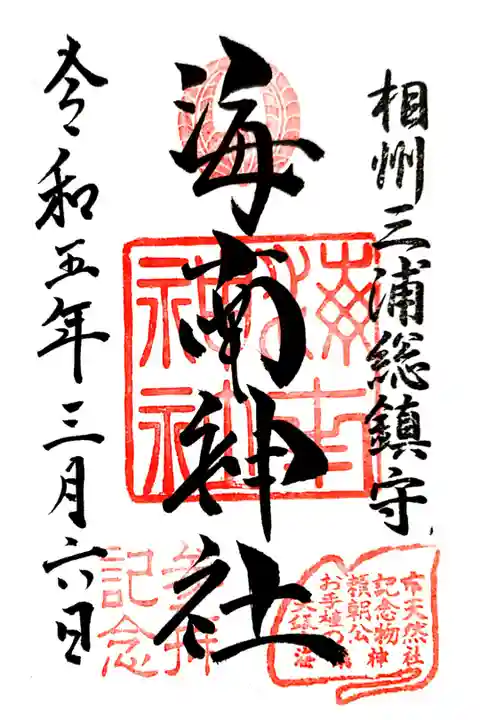 相州三浦総鎮守
海南神社
令和五年三月六日
海南神社
参拝
記念
市天然
記念物
頼朝公
お手植の
神社